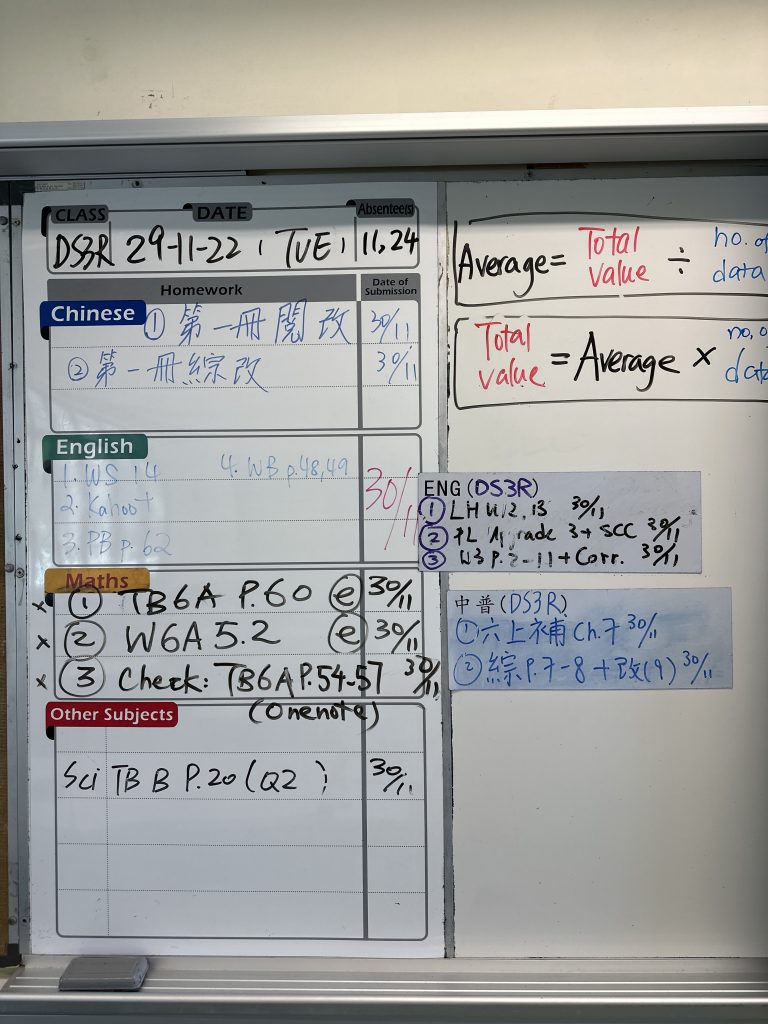 CLASS DATE Absentee(s)
DS3R 29-11-22, TUE, 11,24
Homework Date of Submission
Chinese ① 第一冊閱改 30/11
② 第一冊綜改 30/11
English
1. WS 14 4. WB p.48,49 30/11
2. Kahoot
3. PB p. 62
Maths
× ① TB6A P.60 ⓔ 30/11
× ② W6A 5.2 ⓔ 30/11
× ③ Check: TB6A P.54-57 30/11
(Onenote)
Other Subjects
Sci TB B P.20 (Q2 ) 30/11
Average = Total value ÷ no. of data
Total value = Average × no. o data
ENG (DS3R)
① LH 30/11
② Upgrade 3 + SCC 30/11
③ P. 2-11 + Corr. 30/11
中普 (DS3R)
① 六上補 Ch.7 30/11
② 綜 P.7-8 + 改(9) 30/11